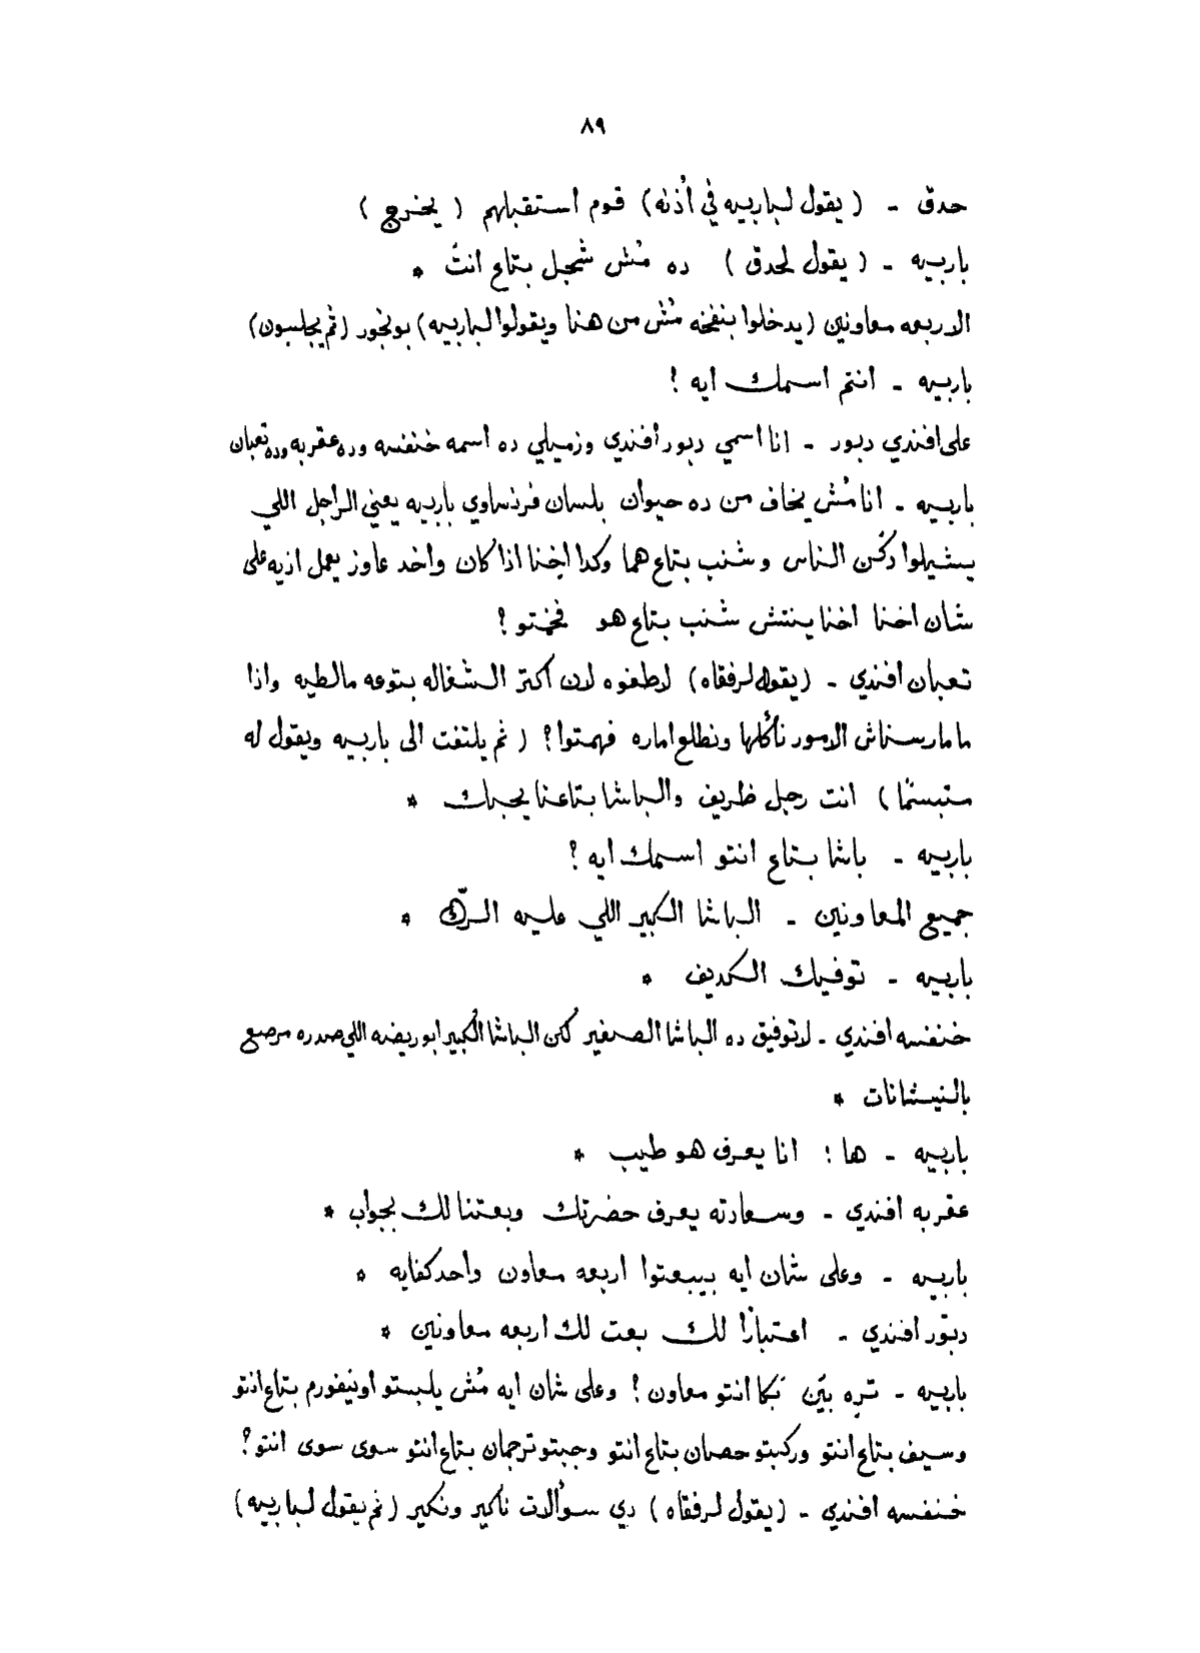 ٨٩
حدق - (يقول لباربيه في أذنه) قوم استقبلهم (يخرج)
باربيه - (يقول لحدق) ده مُش شُجل بتاع انتَ *
الاربعه معاونين (يدخلوا بنفخه مُش من هنا ويقولوا لباربيه) بونجور (ثم يجلسون)
باربيه - انتم اسمك ايه ؟
على افندي دبور - انا اسمي دبور افندي وزميلي ده اسمه خنفسه وده عقربه وده تعبان
باربيه - انا مُش يخاف من ده حيوان بلسان فرنساوي باربيه يعني الراجل اللي
يشيلوا دَكن الناس وشنب بتاع هما وكدا اخنا اذا كان واخد عاوز يعمل اذيه على
شان اخنا اخنا ينتش شنب بتاع هو فخمتو ؟
تعبان افندي - (يقول لرفقاه) لاطفوه لان أكتر الشغاله بتوعه مالطيه واذا
ما مارسناش الامور نأكلها ونطلع اماره فهمتوا؟ (ثم يلتفت الى باربيه ويقول له
متبسمًا) انت رجل ظريف والباشا بتاعنا يحبك *
باربيه - باشا بتاع انتو اسمك ايه ؟
جميع المعاونين - الباشا الكبير اللي عليه الرّك *
باربيه - توفيك الكديف *
خنفسه افندي - لا توفيق ده الباشا الصغير لكن الباشا الكبير ابو ريضه اللي صدره مرصع
بالنيشانات *
باربيه - ها ! انا يعرف هو طيب *
عقربه افندي - وسعادته يعرف حضرتك وبعتنا لك بجواب *
باربيه - وعلى شان ايه بيبعتوا اربعه معاون واحد كفايه *
دبّور افندي - اعتبارًا لك بعت لك اربعه معاونين *
باربيه - تره بيَن بَكا انتو معاون ! وعلى شان ايه مُش يلبستو اونيفورم بتاع انتو
وسيف بتاع انتو وركبتو حصان بتاع انتو وجبتو ترجمان بتاع انتو سوى سوى انتو ؟
خنفسه افندي - (يقول لرفقاه) دي سؤالات ناكير ونكير (ثم يقول لباربيه)